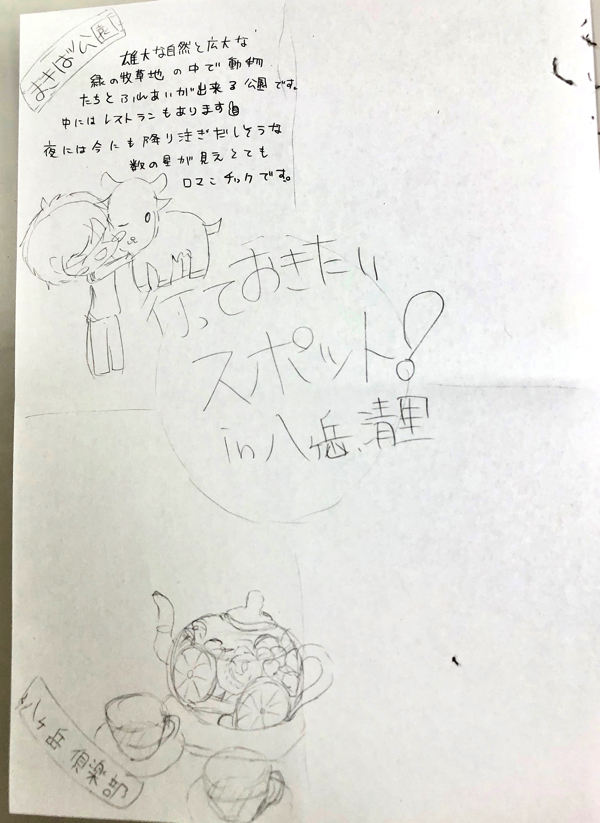 まきば公園
雄大な自然と広大な
緑の牧草地の中で動物
たちとふれあいが出来る公園です。
中にはレストランもあります
夜には今にも降り注ぎだしそうな
数の星が見えとても
ロマンチックです。
行っておきたい
スポット!
in 八ヶ岳、清里
八ヶ岳 倶楽部